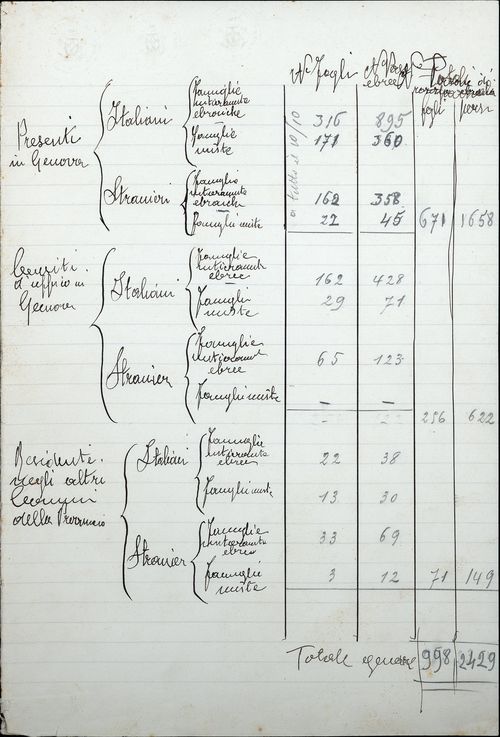 Nº Fogli
ebrei
fogli
pers.
a tutto il 10/10
Presenti
in Genova
Italiani
Famiglie
interamente
ebraiche 316 895
Famiglie
miste 171 360
Stranieri
Famiglie
interamente
ebraiche 162 358
Famiglie miste 22 45 671 1658
Censiti
d'uffio in
Genova
Italiani
Famiglie
interamente
ebree 162 428
Famiglie
miste 29 71
Stranieri
Famiglie
interamente
ebree 65 123
Famiglie miste – –
256 622
Residenti
negli altri
Comuni
della Provincia
Italiani
Famiglie
interamente
ebree 22 38
Famiglie miste 13 30
Stranieri
Famiglie
interamente
ebree 33 69
Famiglie
miste 3 12 71 149
Totale 998 2429